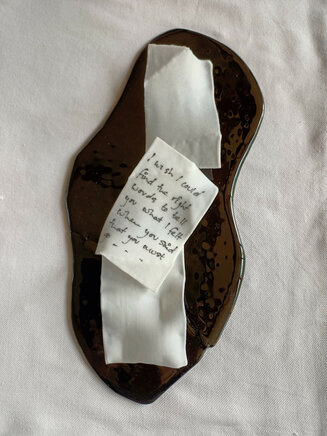 I wish I could
find the right
words to tell
you what I felt
when you said
that you
- - -